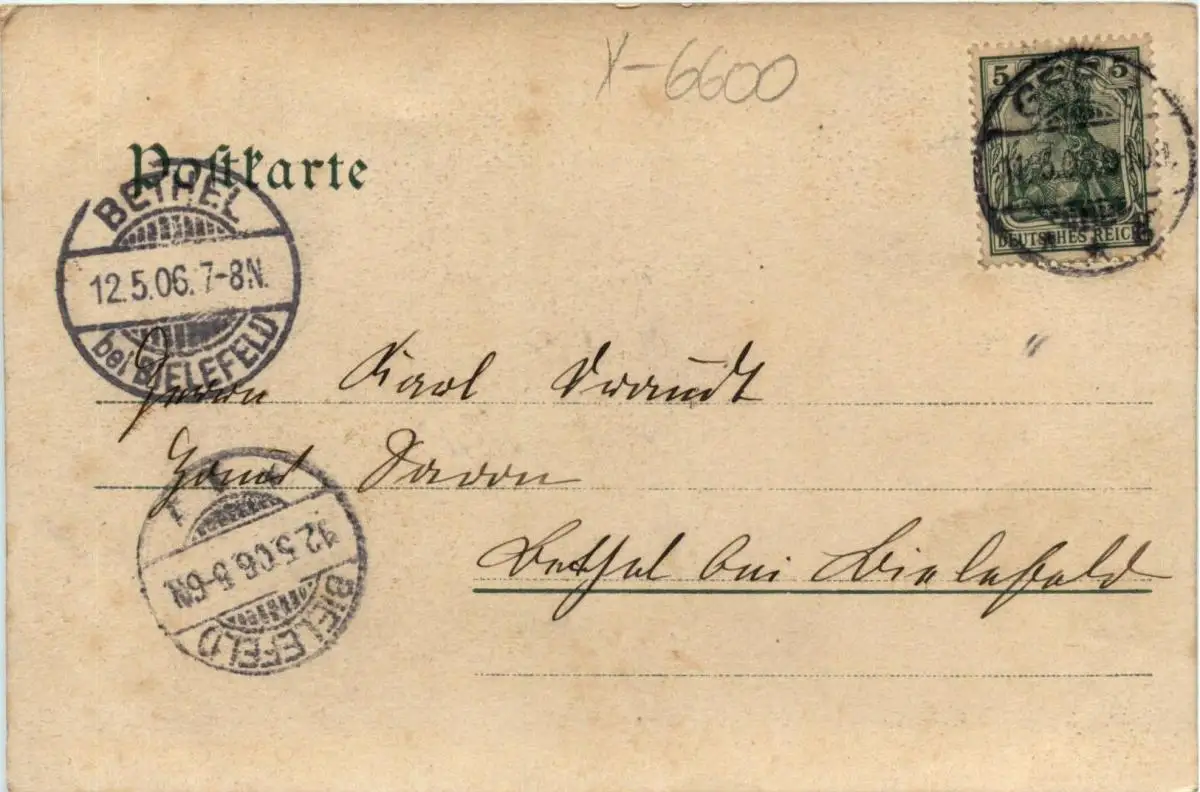 X-6600
Postkarte
5 5
DEUTSCHES REICH
BETHEL
12.5.06.7-8N.
bei BIELEFELD
Herrn Karl
Haus Saron
12.5.06.5-6N.
BIELEFELD
Bethel bei Bielefeld